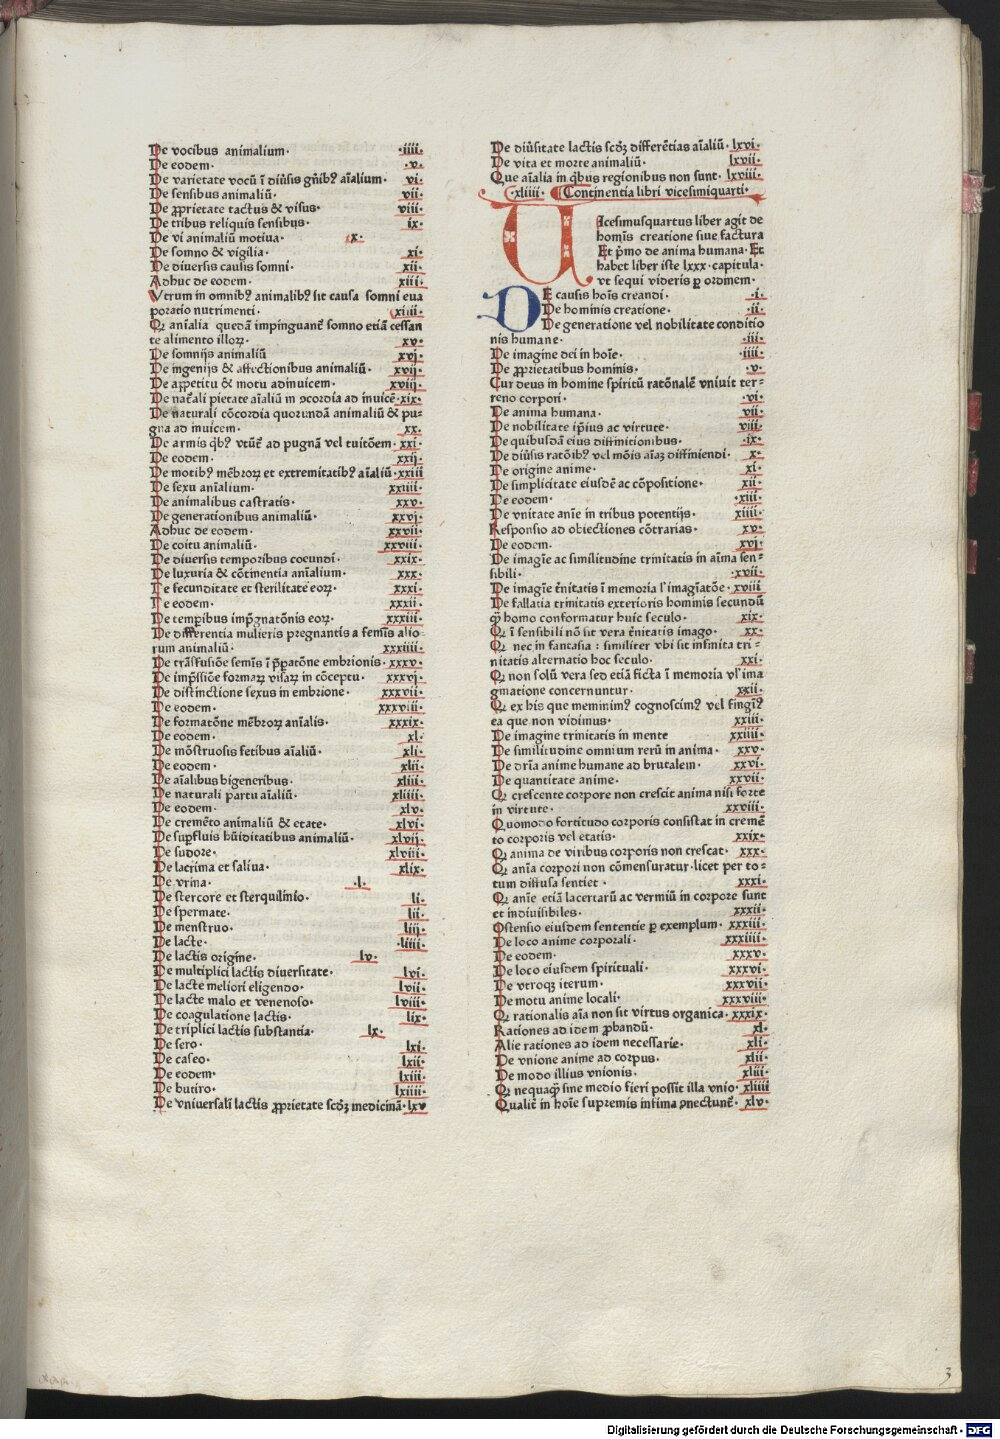 De vocibus animalium· ·iiii·
De eodem· ·v·
De varietate vocū ī diūsis gn̄ibꝰ aīalium· vi·
De sensibus animaliū· vii·
De ꝓprietate tactus & visus· viii·
De tribus reliquis sensibus· ix·
De vi animaliū motiva· x·
De somno & vigilia· xi·
De diversis causis somni· xii·
Adhuc de eodem· xiii·
Vtrum in omnibꝰ animalibꝰ sit causa somni eva
poratio nutrimenti· xiiii·
Qꝛ anīalia quedā impinguant̄ somno etiā cessan
te alimento illoꝝ· xv·
De somnijs animaliū xvj·
De ingenijs & affectionibus animaliū· xvij·
De appetitu & motu adinvicem· xviij·
De nat̄ali pietate aīaliū in ꝯcordia ad invicē· xix·
De naturali cōcordia quorundā animaliū & pu⸗
gna ad invicem· xx·
De armis q̄bꝰ vtūt̄ ad pugnā vel tuitōem· xxi·
De eodem· xxij·
De motibꝰ mēbroꝝ et extremitatibꝰ aīaliū· xxiii
De sexu anīalium· xxiiii·
De animalibus castratis· xxv·
De generationibus animaliū· xxvj·
Adhuc de eodem· xxvii·
De coitu animaliū· xxviii·
De diversis temporibus coeundi· xxix·
De luxuria & cōtinentia anīalium· xxx·
De fecunditate et sterilitate eoꝝ· xxxi·
De eodem· xxxii·
De temꝑibus imp̄gnatōnis eoꝝ· xxxiii·
De differentia mulieris pregnantis a femīs alio
rum animaliū· xxxiiii·
De trāsfusiōe semīs ī p̄ꝑatōne embrionis· xxxv·
De imp̄ssiōe formaꝝ visaꝝ in cōceptu· xxxvj·
De distinctione sexus in embrione· xxxvii·
De eodem· xxxviii·
De formatōne mēbroꝝ anīalis· xxxix·
De eodem· xl·
De mōstruosis fetibus aīaliū· xli·
De eodem· xlii·
De aīalibus bigeneribus· xliii·
De naturali partu aīaliū· xliiii·
De eodem· xlv·
De cremēto animaliū & etate· xlvi·
De suꝑfluis hūiditatibus animaliū· xlvij·
De sudore· xlviii·
De lacrima et saliva· xlix·
De vrina· ·l·
De stercore et sterquilinio· li·
De spermate· lii·
De menstruo· liij·
De lacte· liiii·
De lactis origine· lv·
De multiplici lactis diversitate· lvi·
De lacte meliori eligendo· lvii·
De lacte malo et venenoso· lviii·
De coagulatione lactis· lix·
De triplici lactis substantia· lx·
De sero· lxi·
De caseo· lxii·
De eodem· lxiii·
De butiro· lxiiii·
De vniversali lactis ꝓprietate scdꝫ medicinā· lxv
De diūsitate lactis scdꝫ differētias aīaliū· lxvi·
De vita et morte animaliū· lxvii·
Que aīalia in q̄bus regionibus non sunt· lxviii·
·xliiii· Continentia libri vicesimiquarti·
Vicesimusquartus liber agit de
homīs creatione sive factura
Et p̄mo de anima humana· Et
habet liber iste lxxx· capitula·
vt sequi videris ꝑ ordinem·
DE causis hoīs creandi· ·i·
De hominis creatione· ·ii·
De generatione vel nobilitate conditio
nis humane· ·iii·
De imagine dei in hoīe· ·iiii·
De ꝓprietatibus hominis· ·v·
Cur deus in homine spiritū ratōnalē vnivit ter⸗
reno corpori· ·vi·
De anima humana· vii·
De nobilitate ip̄ius ac virtute· viii·
De quibusdā eius diffinitionibus· ·ix·
De diūsis ratōibꝰ vel mōis aīaꝫ diffiniendi· x·
De origine anime· xi·
De simplicitate eiusdē ac cōpositione· xii·
De eodem· ·xiii·
De vnitate anīe in tribus potentijs· xiiii·
Responsio ad obiectiones cōtrarias· xv·
De eodem· xvj·
De imagīe ac similitudine trinitatis in aīma sen⸗
sibili· ·xvii·
De imagīe t̄nitatis ī memoria l' imagīatōe· xviii
De fallatia trinitatis exterioris hominis secundū
qꝫ homo conformatur huic seculo· xix·
Qꝛ ī sensibili nō sit vera t̄nitatis imago· xx·
Qꝛ nec in fantasia : similiter vbi sit infinita tri⸗
nitatis alternatio hoc seculo· xxi·
Qꝛ non solū vera sed etiā ficta ī memoria vl' ima
ginatione concernuntur· xxii·
Qꝛ ex his que meminimꝰ cognoscimꝰ vel fingīꝰ
ea que non vidimus· xxiii·
De imagine trinitatis in mente xxiiii·
De similitudine omnium rerū in anima· xxv·
De dr̄ia anime humane ad brutalem· xxvi·
De quantitate anime· xxvii·
Qꝛ crescente corpore non crescit anima nisi forte
in virtute· xxviii·
Quomodo fortitudo corporis consistat in cremē
to corporis vel etatis· xxix·
Qꝛ anima de viribus corporis non crescat· xxx·
Qꝛ anīa corpori non cōmensuratur· licet per to⸗
tum diffusa sentiet· xxxi·
Qꝛ anīe etiā lacertarū ac vermiū in corpore sunt
et indivisibiles· xxxii·
Ostensio eiusdem sententie ꝑ exemplum· xxxiii·
De loco anime corporali· xxxiiii·
De eodem· xxxv·
De loco eiusdem spirituali· xxxvi·
De vtroqꝫ iterum· xxxvii·
De motu anime locali· xxxviii·
Qꝛ rationalis aīa non sit virtus organica· xxxix·
Rationes ad idem ꝓbandū· xl·
Alie rationes ad idem necessarie· xli·
De vnione anime ad corpus· xlii·
De modo illius vnionis· xliii·
Qꝛ nequaqꝫ sine medio fieri possit illa vnio· xliiii
Qualit̄ in hoīe supremis infima ꝯnectunt̄· xlv·
3
Digitalisierung gefördert durch die Deutsche Forschungsgemeinschaft · DFG